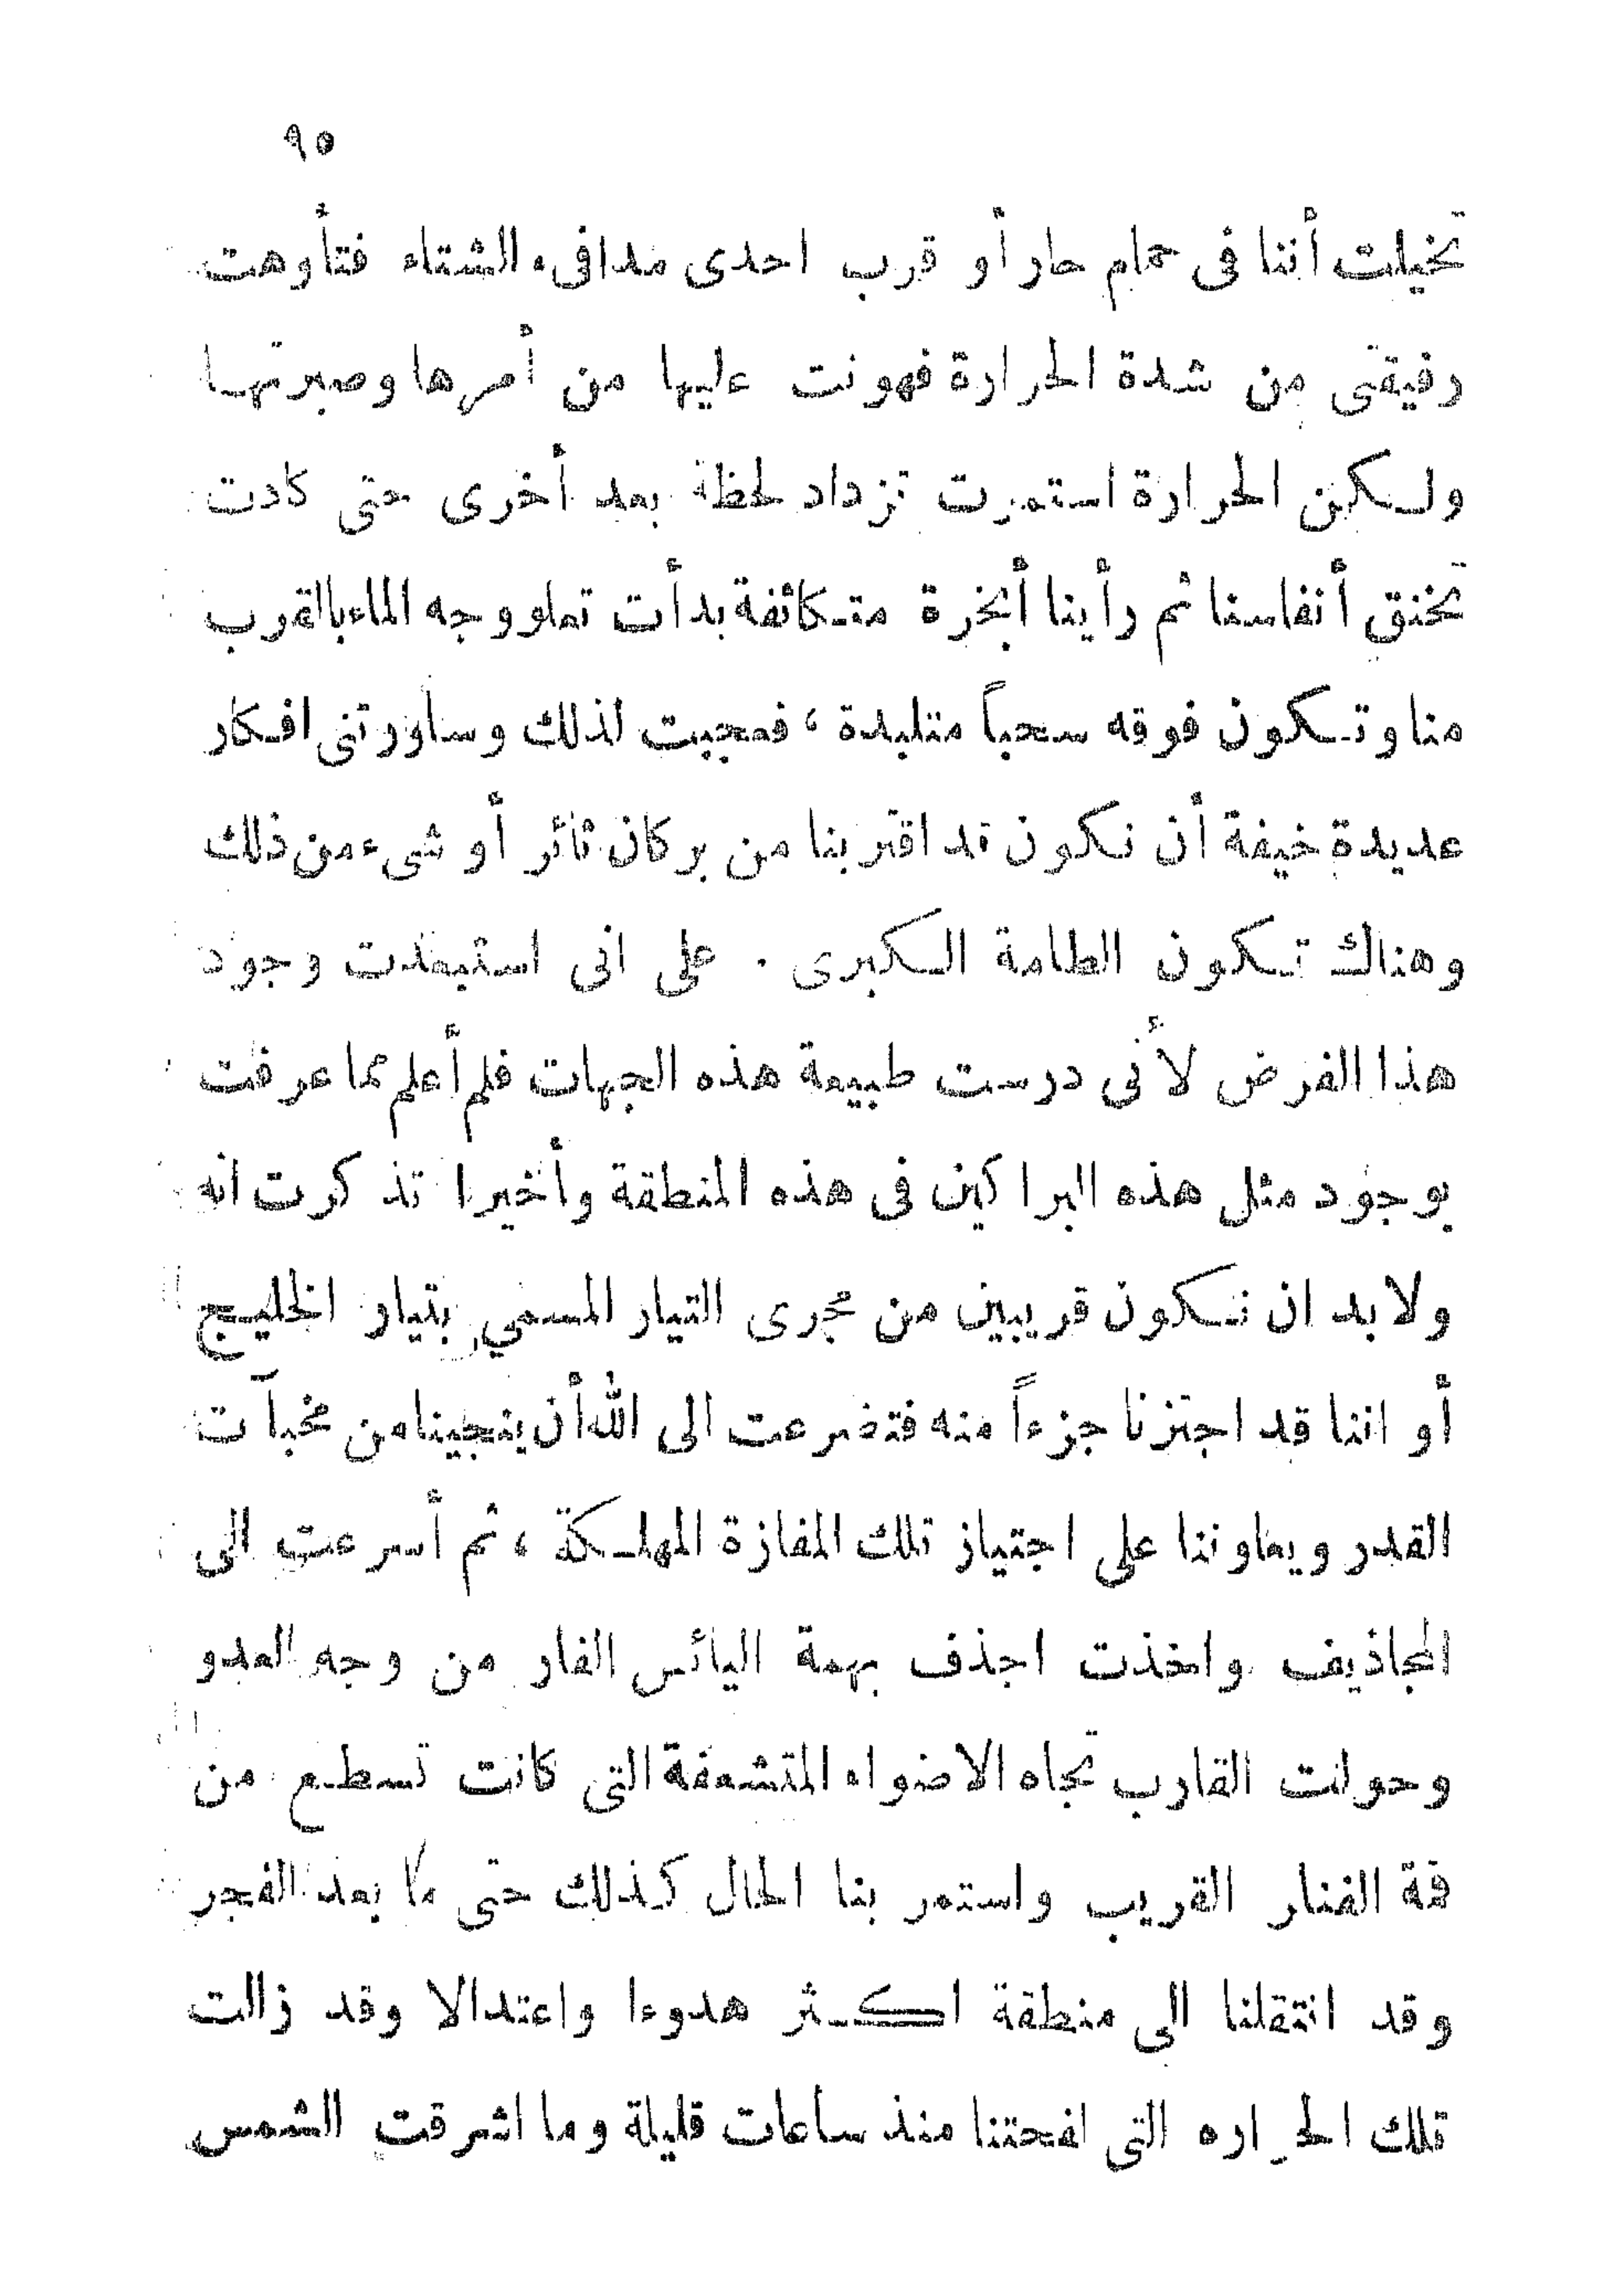 ٩٥
تخيلت أننا فى حمام حار أو قرب احدى مدافىء الشتاء فتأوهت
رفيقتى من شدة الحرارة فهونت عليها من أمرها وصبرتها
ولكن الحرارة استمرت تزداد لحظة بعد أخرى حتى كادت
تخنق أنفاسنا ثم رأينا أبخرة متكاثفة بدأت تعلو وجه الماء بالقرب
منا وتكون فوقه سحباً متلبدة ، فعجبت لذلك وساورتنى افكار
عديدة خيفة أن نكون قد اقتربنا من بركان ثائر أو شىء من ذلك
وهناك تكون الطامة الكبرى . على انى استبعدت وجود
هذا الفرض لأنى درست طبيعة هذه الجهات فلم أعلم مما عرفت
بوجود مثل هذه البراكين فى هذه المنطقة وأخيرا تذكرت انه
ولا بد ان نكون قريبين من مجرى التيار المسمي بتيار الخليج
أو اننا قد اجتزنا جزءاً منه فتضرعت الى الله أن ينجينا من مخبآت
القدر ويعاوننا على اجتياز تلك المفازة المهلكة ، ثم أسرعت الى
المجاذيف واخذت اجذف بهمة اليائس الفار من وجه العدو
وحولت القارب تجاه الاضواء المتشععة التى كانت تسطع من
قمة الفنار القريب واستمر بنا الحال كذلك حتى ما بعد الفجر
وقد انتقلنا الى منطقة اكثر هدوءا واعتدالا وقد زالت
تلك الحراره التى لفحتنا منذ ساعات قليلة وما اشرقت الشمس